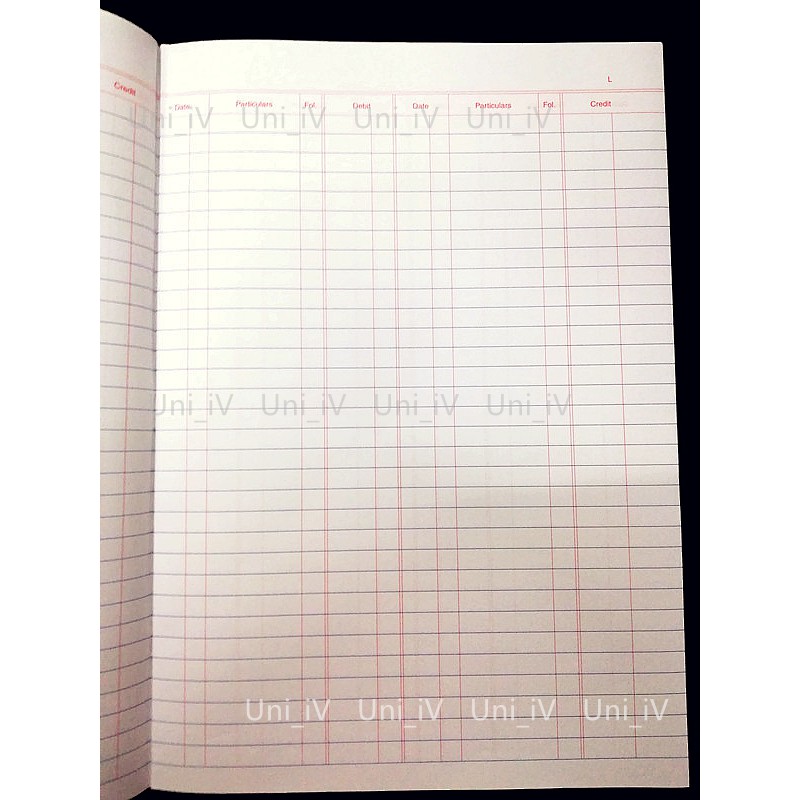 L
Credit
Date Particulars Fol. Debit Date Particulars Fol. Credit
Uni_iV Uni_iV Uni_iV Uni_iV
Uni_iV Uni_iV Uni_iV Uni_iV
Uni_iV Uni_iV Uni_iV Uni_iV